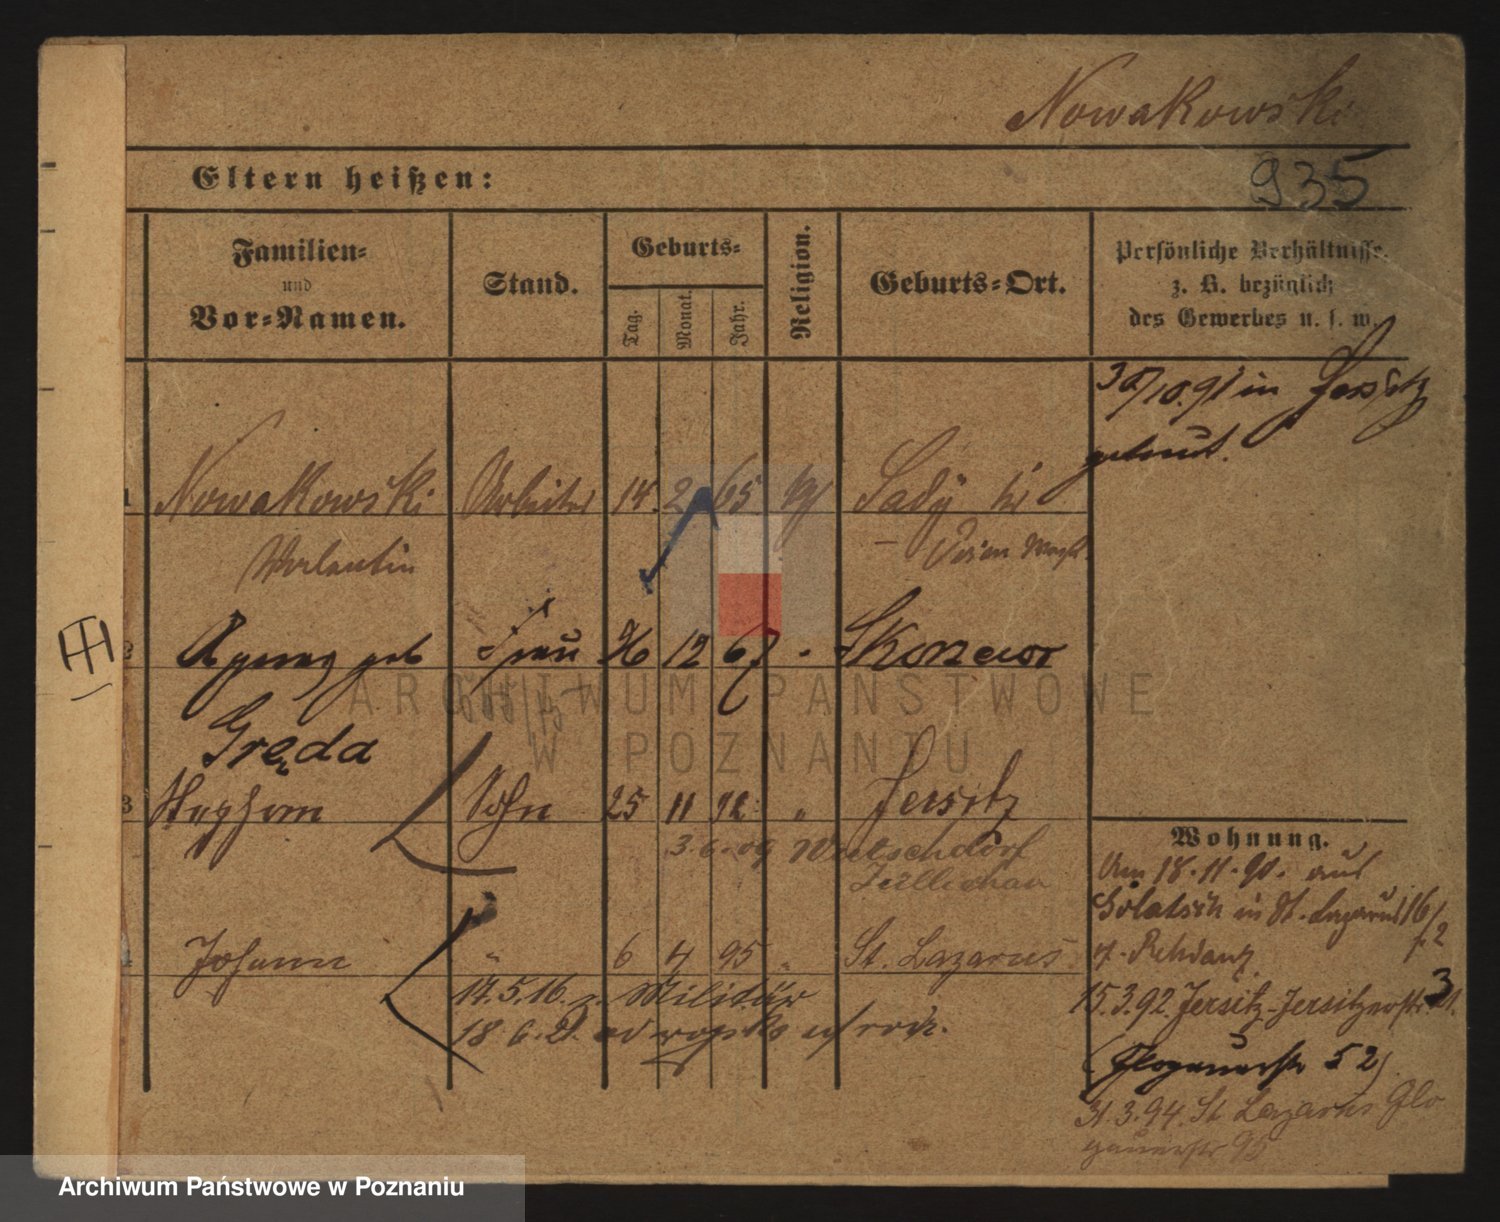 Nowakowski
935
Eltern heißen:
Familien-
und
Vor-Namen.
Stand.
Geburts-
Tag.
Monat.
Jahr.
Religion.
Geburts-Ort.
Persönliche Verhältnisse,
z. B. bezüglich
des Gewerbes u. s. w.
30/10.91 in Jersitz
getraut.
1 Nowakowski Arbeiter 14. 2 65 Sady
Valentin Posen
2 geb Frau 26 12 67
Gręda
3 Stephan Sohn 25 11 92 " Jersitz
3. 6. 09 Wutschdorf
Züllichau
4 Johann " 6 4 95 " St. Lazarus
17.5.16. z. Militär
18 6. 21. od wojska
Wohnung.
Am 18.11.90. aus
in St. Lazarus 16/
15.3.92. Jersitz-Jersitzerstr. 31.
(Glogauerstr 52)
31.3.94. St Lazarus Glo
gauerstr 95
ARCHIWUM PAŃSTWOWE
W POZNANIU
Archiwum Państwowe w Poznaniu